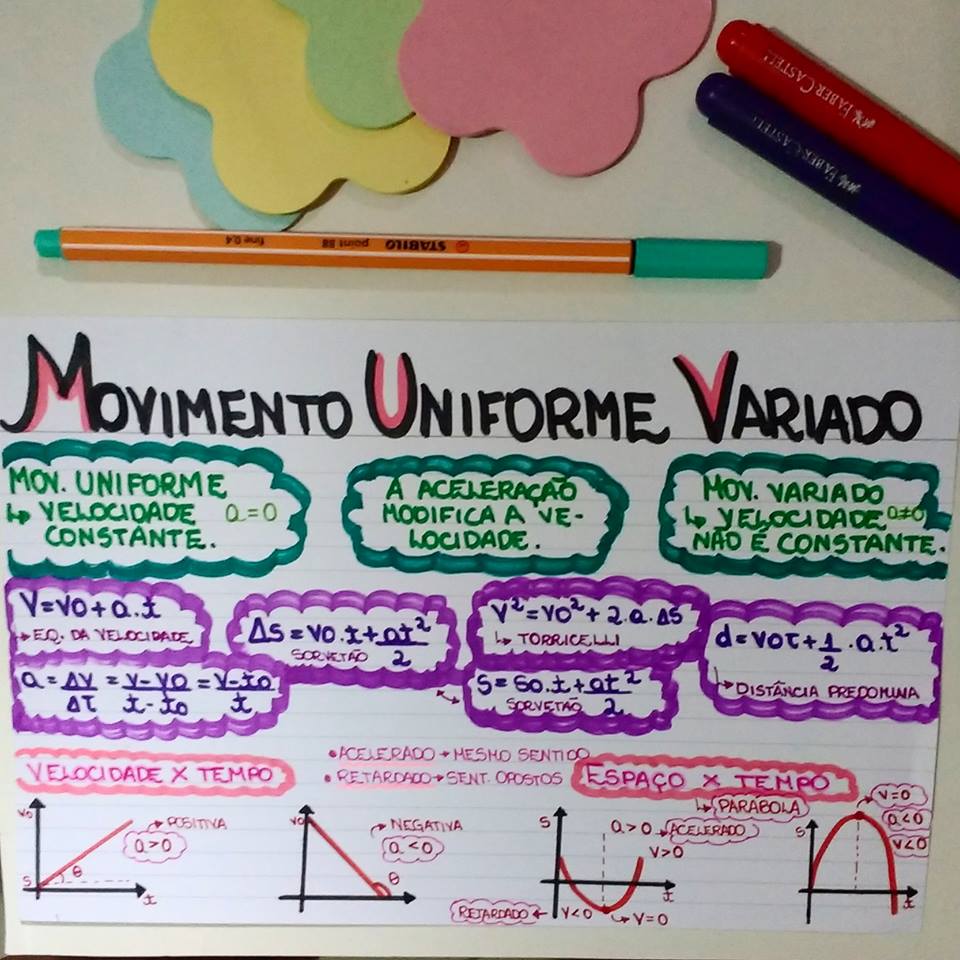 FABER CASTELL
FABER CASTELL
STABILO point 88 fine 0,4
MOVIMENTO UNIFORME VARIADO
MOV. UNIFORME
↳ VELOCIDADE a=0
CONSTANTE.
A ACELERAÇÃO
MODIFICA A VE-
LOCIDADE.
MOV. VARIADO
↳ VELOCIDADE a≠0
NÃO É CONSTANTE.
V=V0+a.t
↳ EQ. DA VELOCIDADE
ΔS=V0.t+at²/2
SORVETÃO
V²=V0²+2.a.ΔS
↳ TORRICELLI
d=V0t+1/2.a.t²
↳ DISTÂNCIA PREDOMINA
a=ΔV/Δt=V-V0/t-t0=V-t0/t
S=S0.t+at²/2
SORVETÃO
VELOCIDADE X TEMPO
•ACELERADO→MESMO SENTIDO
•RETARDADO→SENT. OPOSTOS
ESPAÇO X TEMPO
↳ PARÁBOLA
V0
→ POSITIVA
a>0
θ
S
t
V0
→ NEGATIVA
a<0
θ
S
a>0→ACELERADO
V>0
t
RETARDADO ← V<0
↳ V=0
V=0
a<0
V<0
S
t